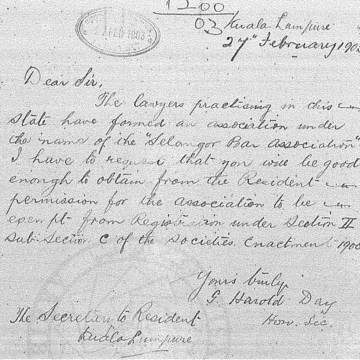 1200
03
FEB 1903
Kuala Lumpure
27th February 190
Dear Sir,
The lawyers practising in this
State have formed an association under
the name of the "Selangor Bar Association"
I have to request that you will be good
enough to obtain from the Resident
permission for the association to be
exempt from Registration under Section II
Sub: Section C of the Societies Enactment 190
Yours truly
G. Harold Day
Hon. Sec.
The Secretary to Resident
Kuala Lumpure